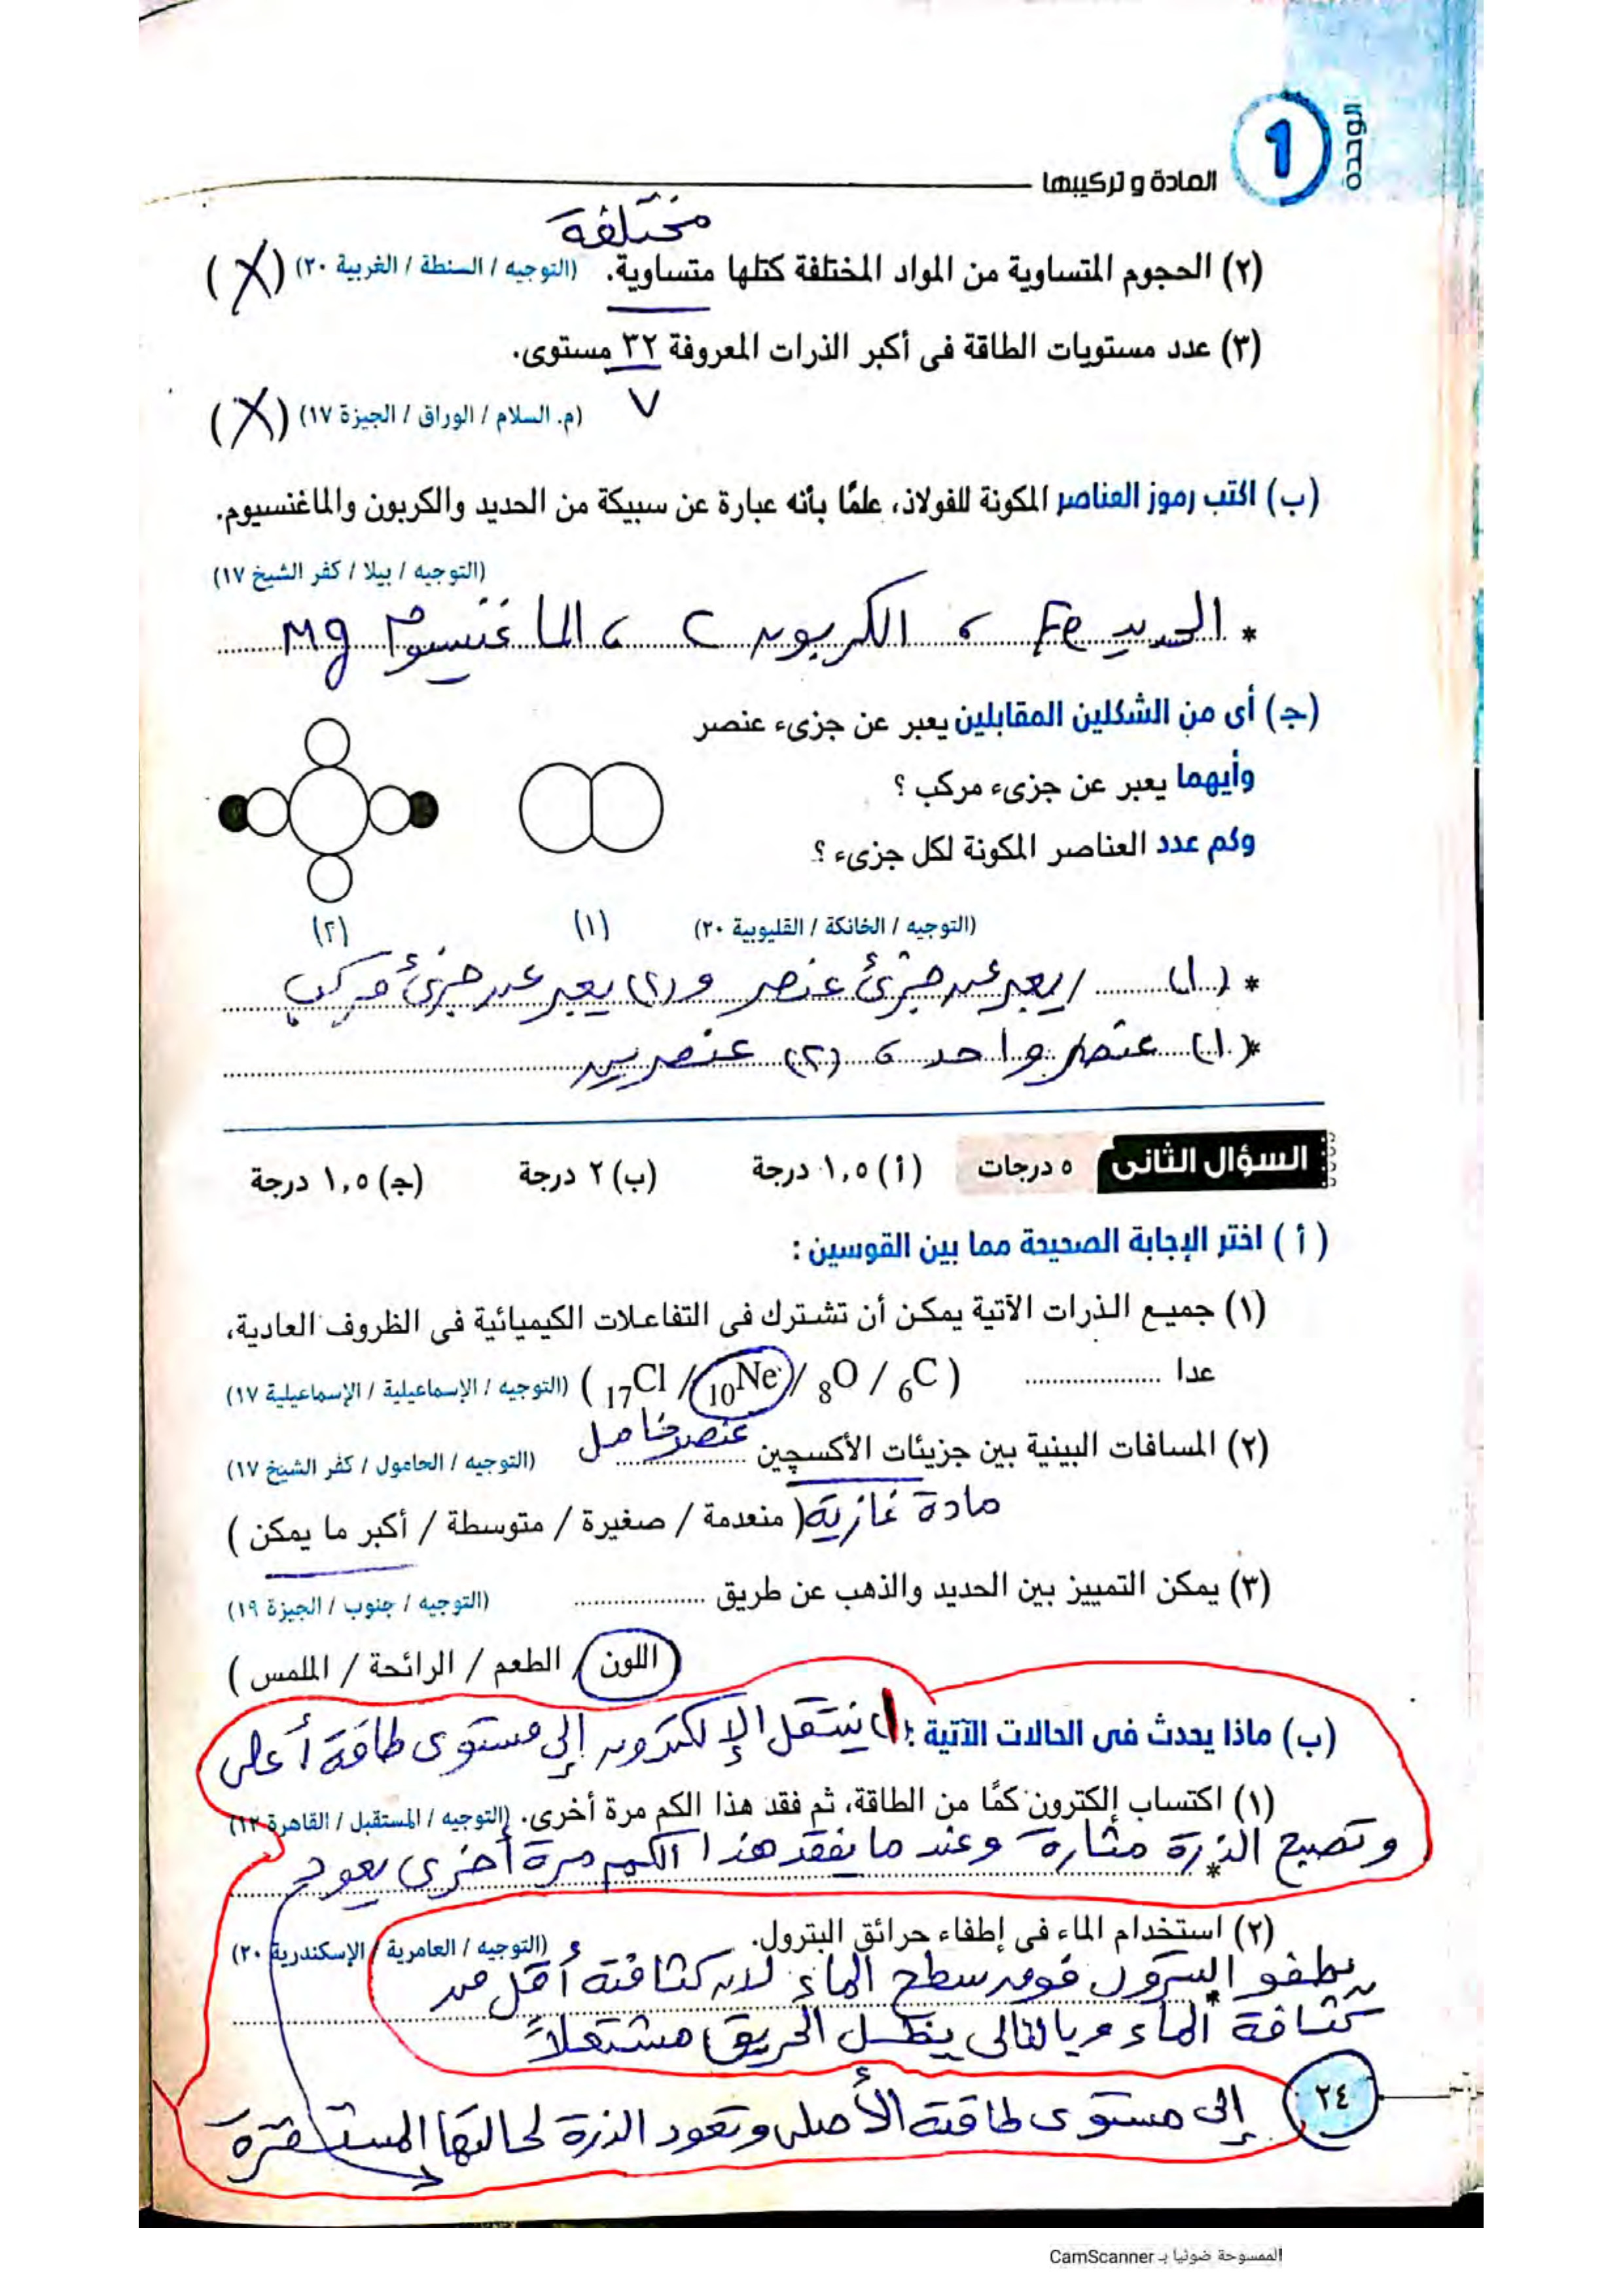 الوحدة
1
المادة و تركيبها
مختلفة
(٢) الحجوم المتساوية من المواد المختلفة كتلها متساوية. (التوجيه / السنطة / الغربية ٢٠) (X)
(٣) عدد مستويات الطاقة فى أكبر الذرات المعروفة ٣٢ مستوى.
٧
(م. السلام / الوراق / الجيزة ١٧) (X)
(ب) اكتب رموز العناصر المكونة للفولاذ، علمًا بأنه عبارة عن سبيكة من الحديد والكربون والماغنسيوم.
(التوجيه / بيلا / كفر الشيخ ١٧)
* الحديد Fe ، الكربون C ، الماغنسيوم Mg
(جـ) أى من الشكلين المقابلين يعبر عن جزىء عنصر
وأيهما يعبر عن جزىء مركب ؟
وكم عدد العناصر المكونة لكل جزىء ؟
(١) (٢)
(التوجيه / الخانكة / القليوبية ٢٠)
* (١) يعبر عن جزئ عنصر و (٢) يعبر عن جزئ مركب
* (١) عنصر واحد ، (٢) عنصرين
السؤال الثانى ٥ درجات (أ) ١,٥ درجة (ب) ٢ درجة (جـ) ١,٥ درجة
(أ) اختر الإجابة الصحيحة مما بين القوسين :
(١) جميع الذرات الآتية يمكن أن تشترك فى التفاعلات الكيميائية فى الظروف العادية،
عدا .................... ( ₁₇Cl / ₁₀Ne / ₈O / ₆C ) (التوجيه / الإسماعيلية / الإسماعيلية ١٧)
عنصر خامل
(٢) المسافات البينية بين جزيئات الأكسچين .................... (التوجيه / الحامول / كفر الشيخ ١٧)
مادة غازية ( منعدمة / صغيرة / متوسطة / أكبر ما يمكن )
(٣) يمكن التمييز بين الحديد والذهب عن طريق .................... (التوجيه / جنوب / الجيزة ١٩)
( اللون / الطعم / الرائحة / الملمس )
(ب) ماذا يحدث فى الحالات الآتية : ١) ينتقل الإلكترون إلى مستوى طاقة أعلى
(١) اكتساب إلكترون كمًا من الطاقة، ثم فقد هذا الكم مرة أخرى. (التوجيه / المستقبل / القاهرة ١٢)
* وتصبح الذرة مثارة وعند ما يفقد هذا الكم مرة أخرى يعود
(٢) استخدام الماء فى إطفاء حرائق البترول. (التوجيه / العامرية / الإسكندرية ٢٠)
* يطفو البترول فوق سطح الماء لان كثافته أقل من
كثافة الماء وبالتالى يظل الحريق مشتعلاً
إلى مستوى طاقته الأصلى وتعود الذرة لحالتها المستقرة
٢٤
الممسوحة ضوئيا بـ CamScanner